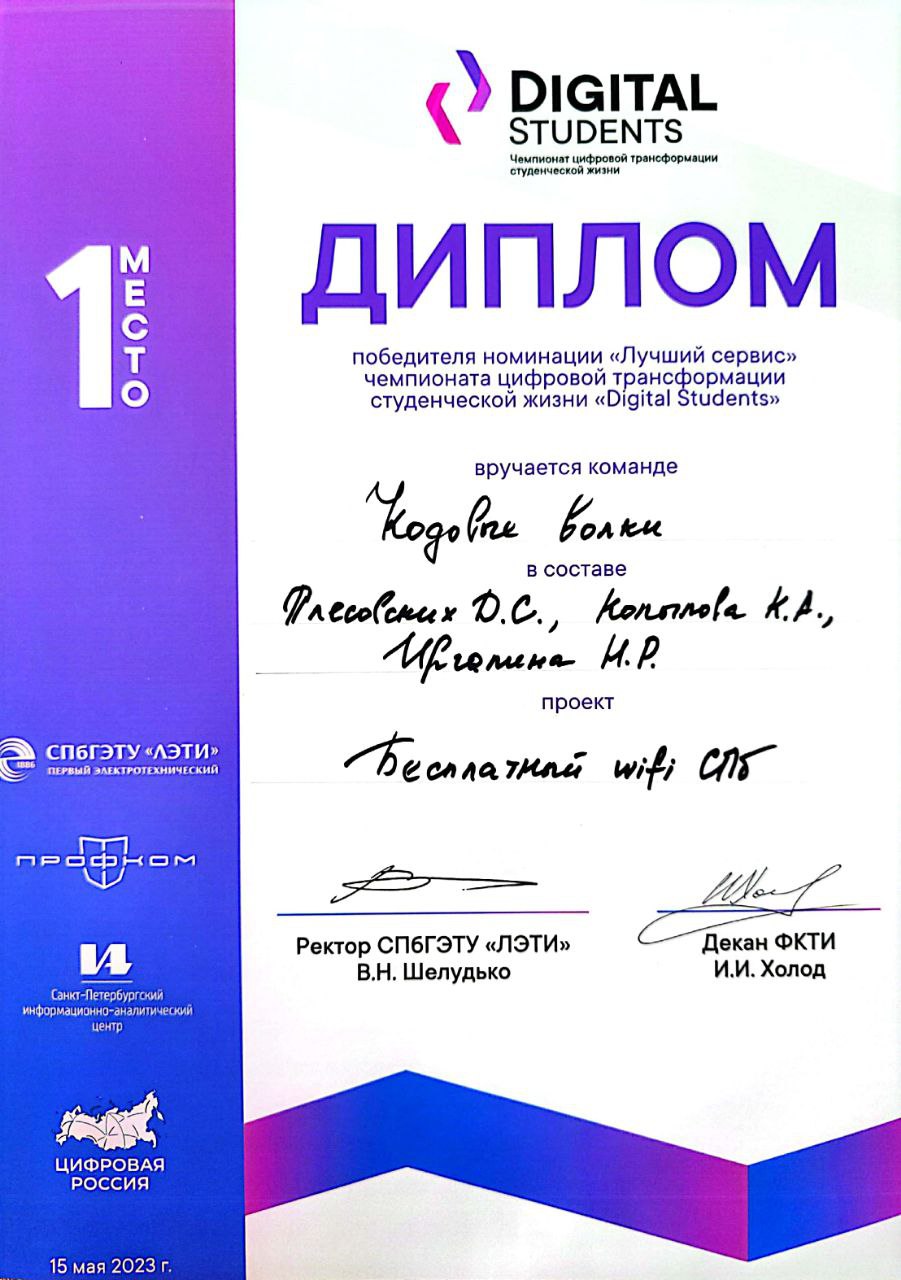 DIGITAL
STUDENTS
Чемпионат цифровой трансформации
студенческой жизни
1 МЕСТО
ДИПЛОМ
победителя номинации «Лучший сервис»
чемпионата цифровой трансформации
студенческой жизни «Digital Students»
вручается команде
Кодовые волки
в составе
Плесовских Д.С., Копылова К.А.,
Иргалина И.Р.
проект
Бесплатный wifi СПб
Ректор СПбГЭТУ «ЛЭТИ»
В.Н. Шелудько
Декан ФКТИ
И.И. Холод
1886
СПбГЭТУ «ЛЭТИ»
ПЕРВЫЙ ЭЛЕКТРОТЕХНИЧЕСКИЙ
ПРОФКОМ
ИА
Санкт-Петербургский
информационно-аналитический
центр
ЦИФРОВАЯ
РОССИЯ
15 мая 2023 г.